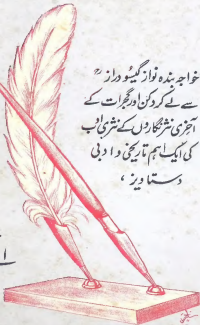 خواجہ بندہ نواز گیسو درازؒ
سے لے کر دکن اور گجرات کے
آخری نثر نگاروں کے نثری ادب
کی ایک اہم تاریخی و ادبی
دستاویز ،